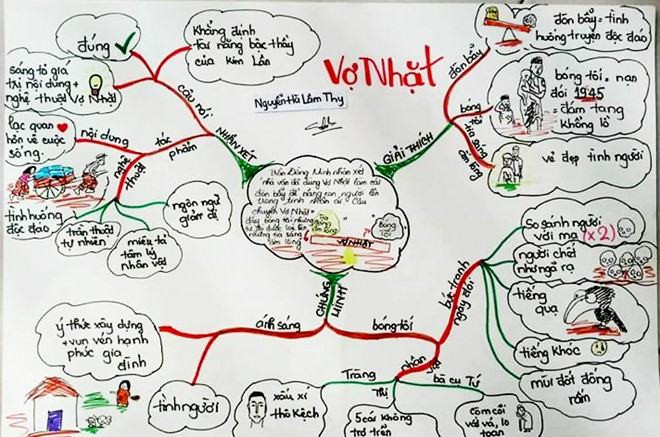 VỢ NHẶT
Nguyễn Hà Lâm Thy
Trần Đăng
nhận xét
nhà văn đã dùng Vợ Nhặt làm cái
đòn bẩy để nâng con người lên
trong tình nhân ái. Câu
chuyện Vợ Nhặt
đầy bóng tối nhưng
từ đó
những tia sáng
ấm lòng
VỢ NHẶT
Bóng
tối
NHẬN XÉT
câu nói
đúng
Khẳng định
tài năng bậc thầy
của Kim Lân
sáng tỏ giá
trị nội dung +
nghệ thuật Vợ Nhặt
tác
phẩm
nội dung
lạc quan
hơn về cuộc
sống.
nghệ
thuật
tình huống
độc đáo
trần thuật
tự nhiên
miêu tả
tâm lý
nhân vật
ngôn ngữ
giản dị
GIẢI THÍCH
đòn bẩy
đòn bẩy = tình
huống truyện độc đáo
bóng
tối
bóng tối = nạn
đói 1945
= đám tang
khổng lồ
tia sáng
ấm lòng
vẻ đẹp tình người
CHỨNG
MINH
ánh sáng
ý thức xây dựng
+ vun vén hạnh
phúc gia
đình
tình người
bóng tối
bức tranh
ngày đói
So sánh người
với ma (x2)
người chết
như ngả rạ
tiếng
quạ
tiếng khóc
mùi đốt đống
rấm
nhân
vật
Tràng
xấu xí
thô kệch
Thị
5 cái không
trơ trẽn
bà cụ Tứ
Còm cõi
vất vả, lo
toan